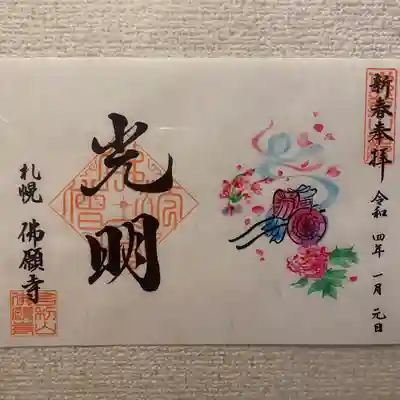 新春奉拝
令和四年一月元日
光明
札幌
佛願寺